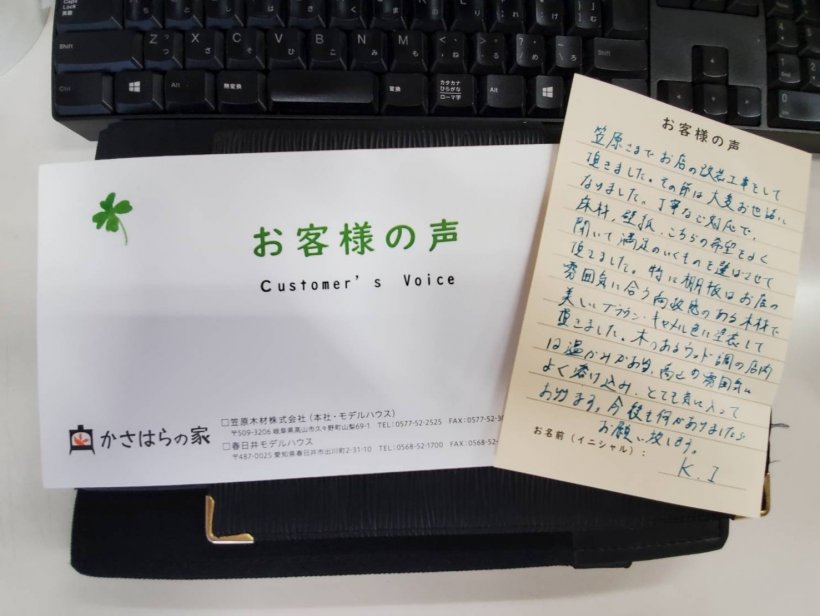 お客様の声
Customer's Voice
かさはらの家
□笠原木材株式会社(本社・モデルハウス)
〒509-3206 岐阜県高山市久々野町山梨69-1 TEL:0577-52-2525 FAX:0577-52-
□春日井モデルハウス
〒487-0025 愛知県春日井市出川町2-31-10 TEL:0568-52-1700 FAX:0568-52-
お客様の声
笠原さまでお店の改装工事をして
頂きました。その節は大変お世話に
なりました。丁寧なご対応で、
床材、壁紙、こちらの希望をよく
聞いて満足のいくものを選ばせて
頂きました。特に棚板はお店の
雰囲気に合う高級感のある木材で
美しいブラウン・キャメル色に塗装して
頂きました。木の あるウッド調の店内
は温かみがあり、 の雰囲気に
よく溶け込み、とても気に入って
おります。今後も何かありましたら
お願い致します。
お名前(イニシャル):
K.I
Caps Lock
英数
Shift
Z
X
C
V
B
N
M
Shift
Ctrl
Alt
無変換
変換
カタカナ
ひらがな
ローマ字
Alt